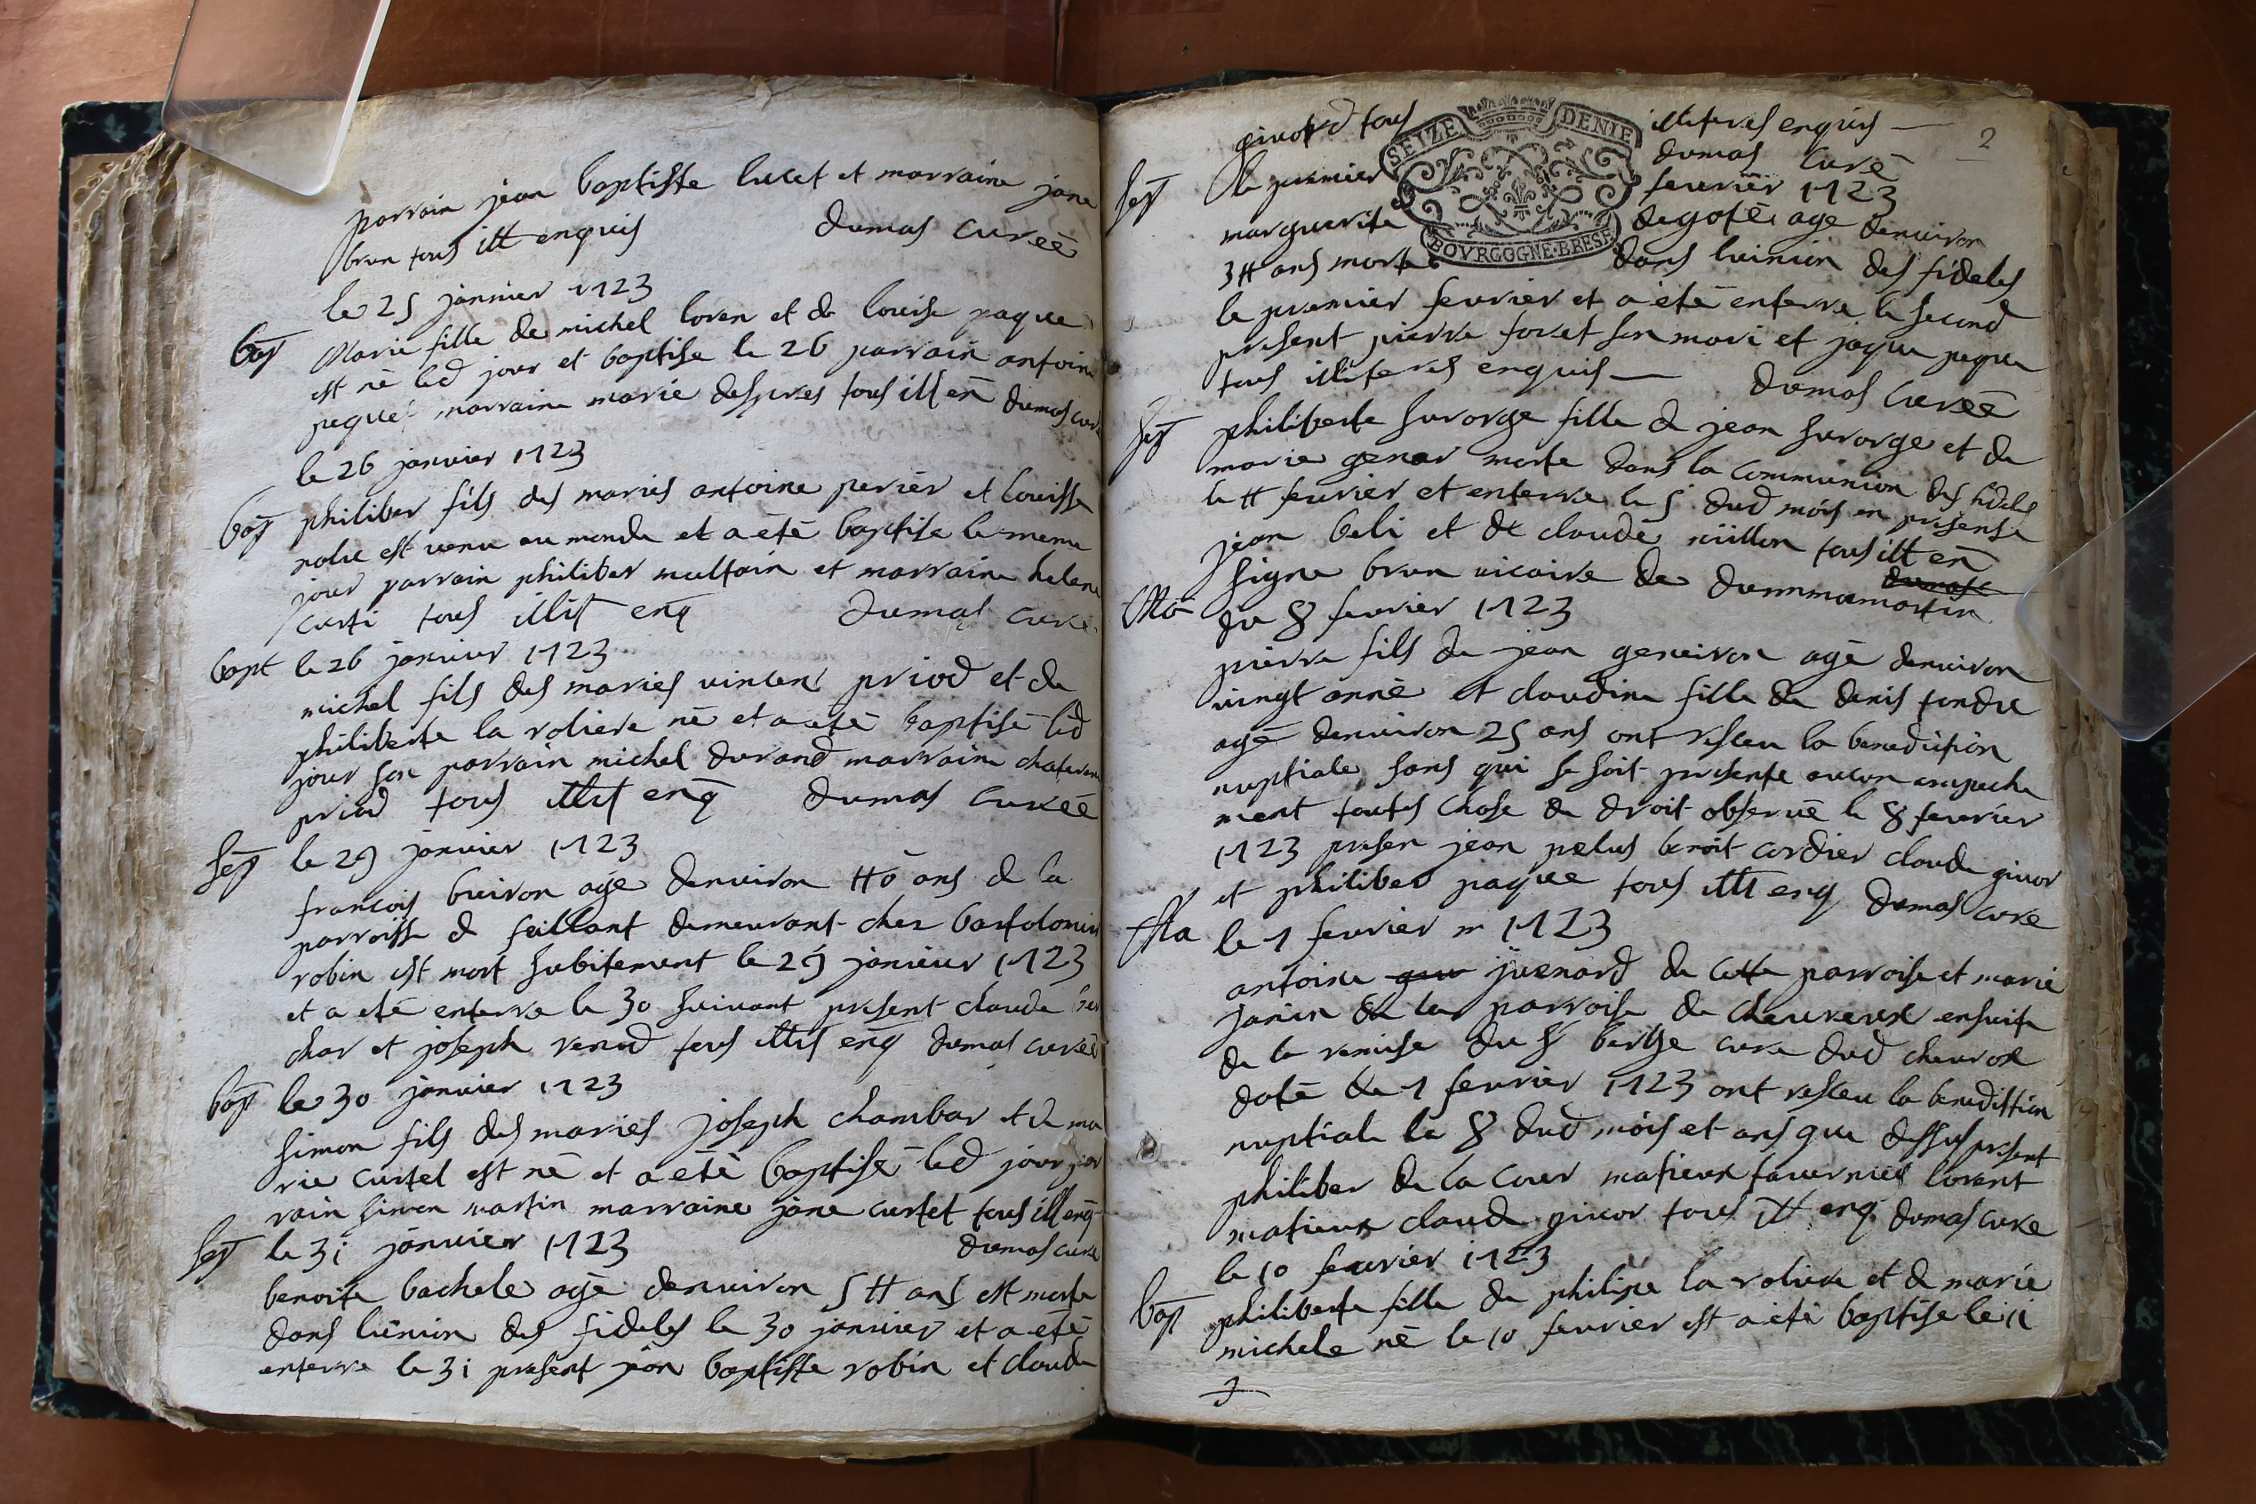 parrain jean baptiste lucet et marraine jane
brun tous ill enquis dumas cureé
le 25 janvier 1723
bap Marie fille de michel loren et de louise paque
est né led jour et baptise le 26 parrain antoine
peque marraine marie desspres tous ill en dumas cure
le 26 janvier 1723
bap philiber fils des mariés antoine perier et louisse
nolie est venu au monde et a été baptise le meme
jour parrain philiber multain et marraine helene
curti tous illit enq dumas cure
bapt le 26 janvier 1723
michel fils des mariés vincent priod et de
philiberte la roliere né et a eté baptisé led
jour son parrain michel durand marraine
priod tous illit enq dumas cureé
sep le 29 janvier 1723
francois buiron age denviron 40 ans de la
parroisse d saillant demeurant chez bartolomin
robin est mort subitement le 29 janvier 1723
et a eté enterre le 30 suivant present claude
char et joseph renud tous illit enq dumas cureé
bap le 30 janvier 1723
simon fils des mariés joseph chambar et de ma
rie curtel est né et a eté baptisé led jour par
rain simon martin marraine jane curtet tous ill enq
sep le 31 janvier 1723 dumas cure
benoite bachele age denviron 54 ans est morte
dans lunion des fideles le 30 janvier et a eté
enterre le 31 present jean baptiste robin et claude
2
SEIZE DENIE
BOVRGOGNE·BRESE
givord tous illiteres enquis
dumas curé
sep le premier fevrier 1723
marguerite degoté age denviron
34 ans morte dans lunion des fideles
le premier fevrier et a eté enterre le second
present pierre foret son mari et jaque peque
tous illiteres enquis dumas cureé
sep philiberte surorge fille d jean surorge et de
marie genar morte dans la communion des fideles
le 4 fevrier et enterre le 5 dud mois en presense
jean beli et de claude tous ill en
signe brun vicaire de dummamartin
Ma du 8 fevrier 1723
pierre fils de jean geneiron agé denviron
vingt anné et claudine fille de denis tondu
agé denviron 25 ans ont resceu la benediction
nuptiale sans qui se soit presente aucun empeche
ment toutes chose de droit observé le 8 fevrier
1723 presen jean pelus benoit cordier claude givor
et philiber paque tous illi enq dumas cure
Ma le 7 fevrier 1723
antoine juenard de cette parroise et marie
janin de la parroise de chevreux ensuite
de la remise du s berthe cure dud chevrox
daté du 7 fevrier 1723 ont resceu la benediction
nuptiale le 8 dud mois et ans que dessus present
philiber de la cour matieux tavernier lorant
matieux claude givor tous ill enq dumas cure
le 10 fevrier 1723
bap philiberte fille de philipe la roliere et d marie
michele né le 10 fevrier est a eté baptise le 11